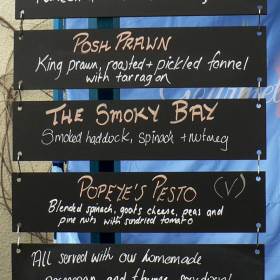 POSH PRAWN
King prawn, roasted + pickled fennel
with tarragon
THE SMOKY BAY
Smoked haddock, spinach + nutmeg
POPEYE'S PESTO (V)
Blended spinach, goats cheese, peas and
pine nuts with sundried tomato
All served with our homemade
and thyme